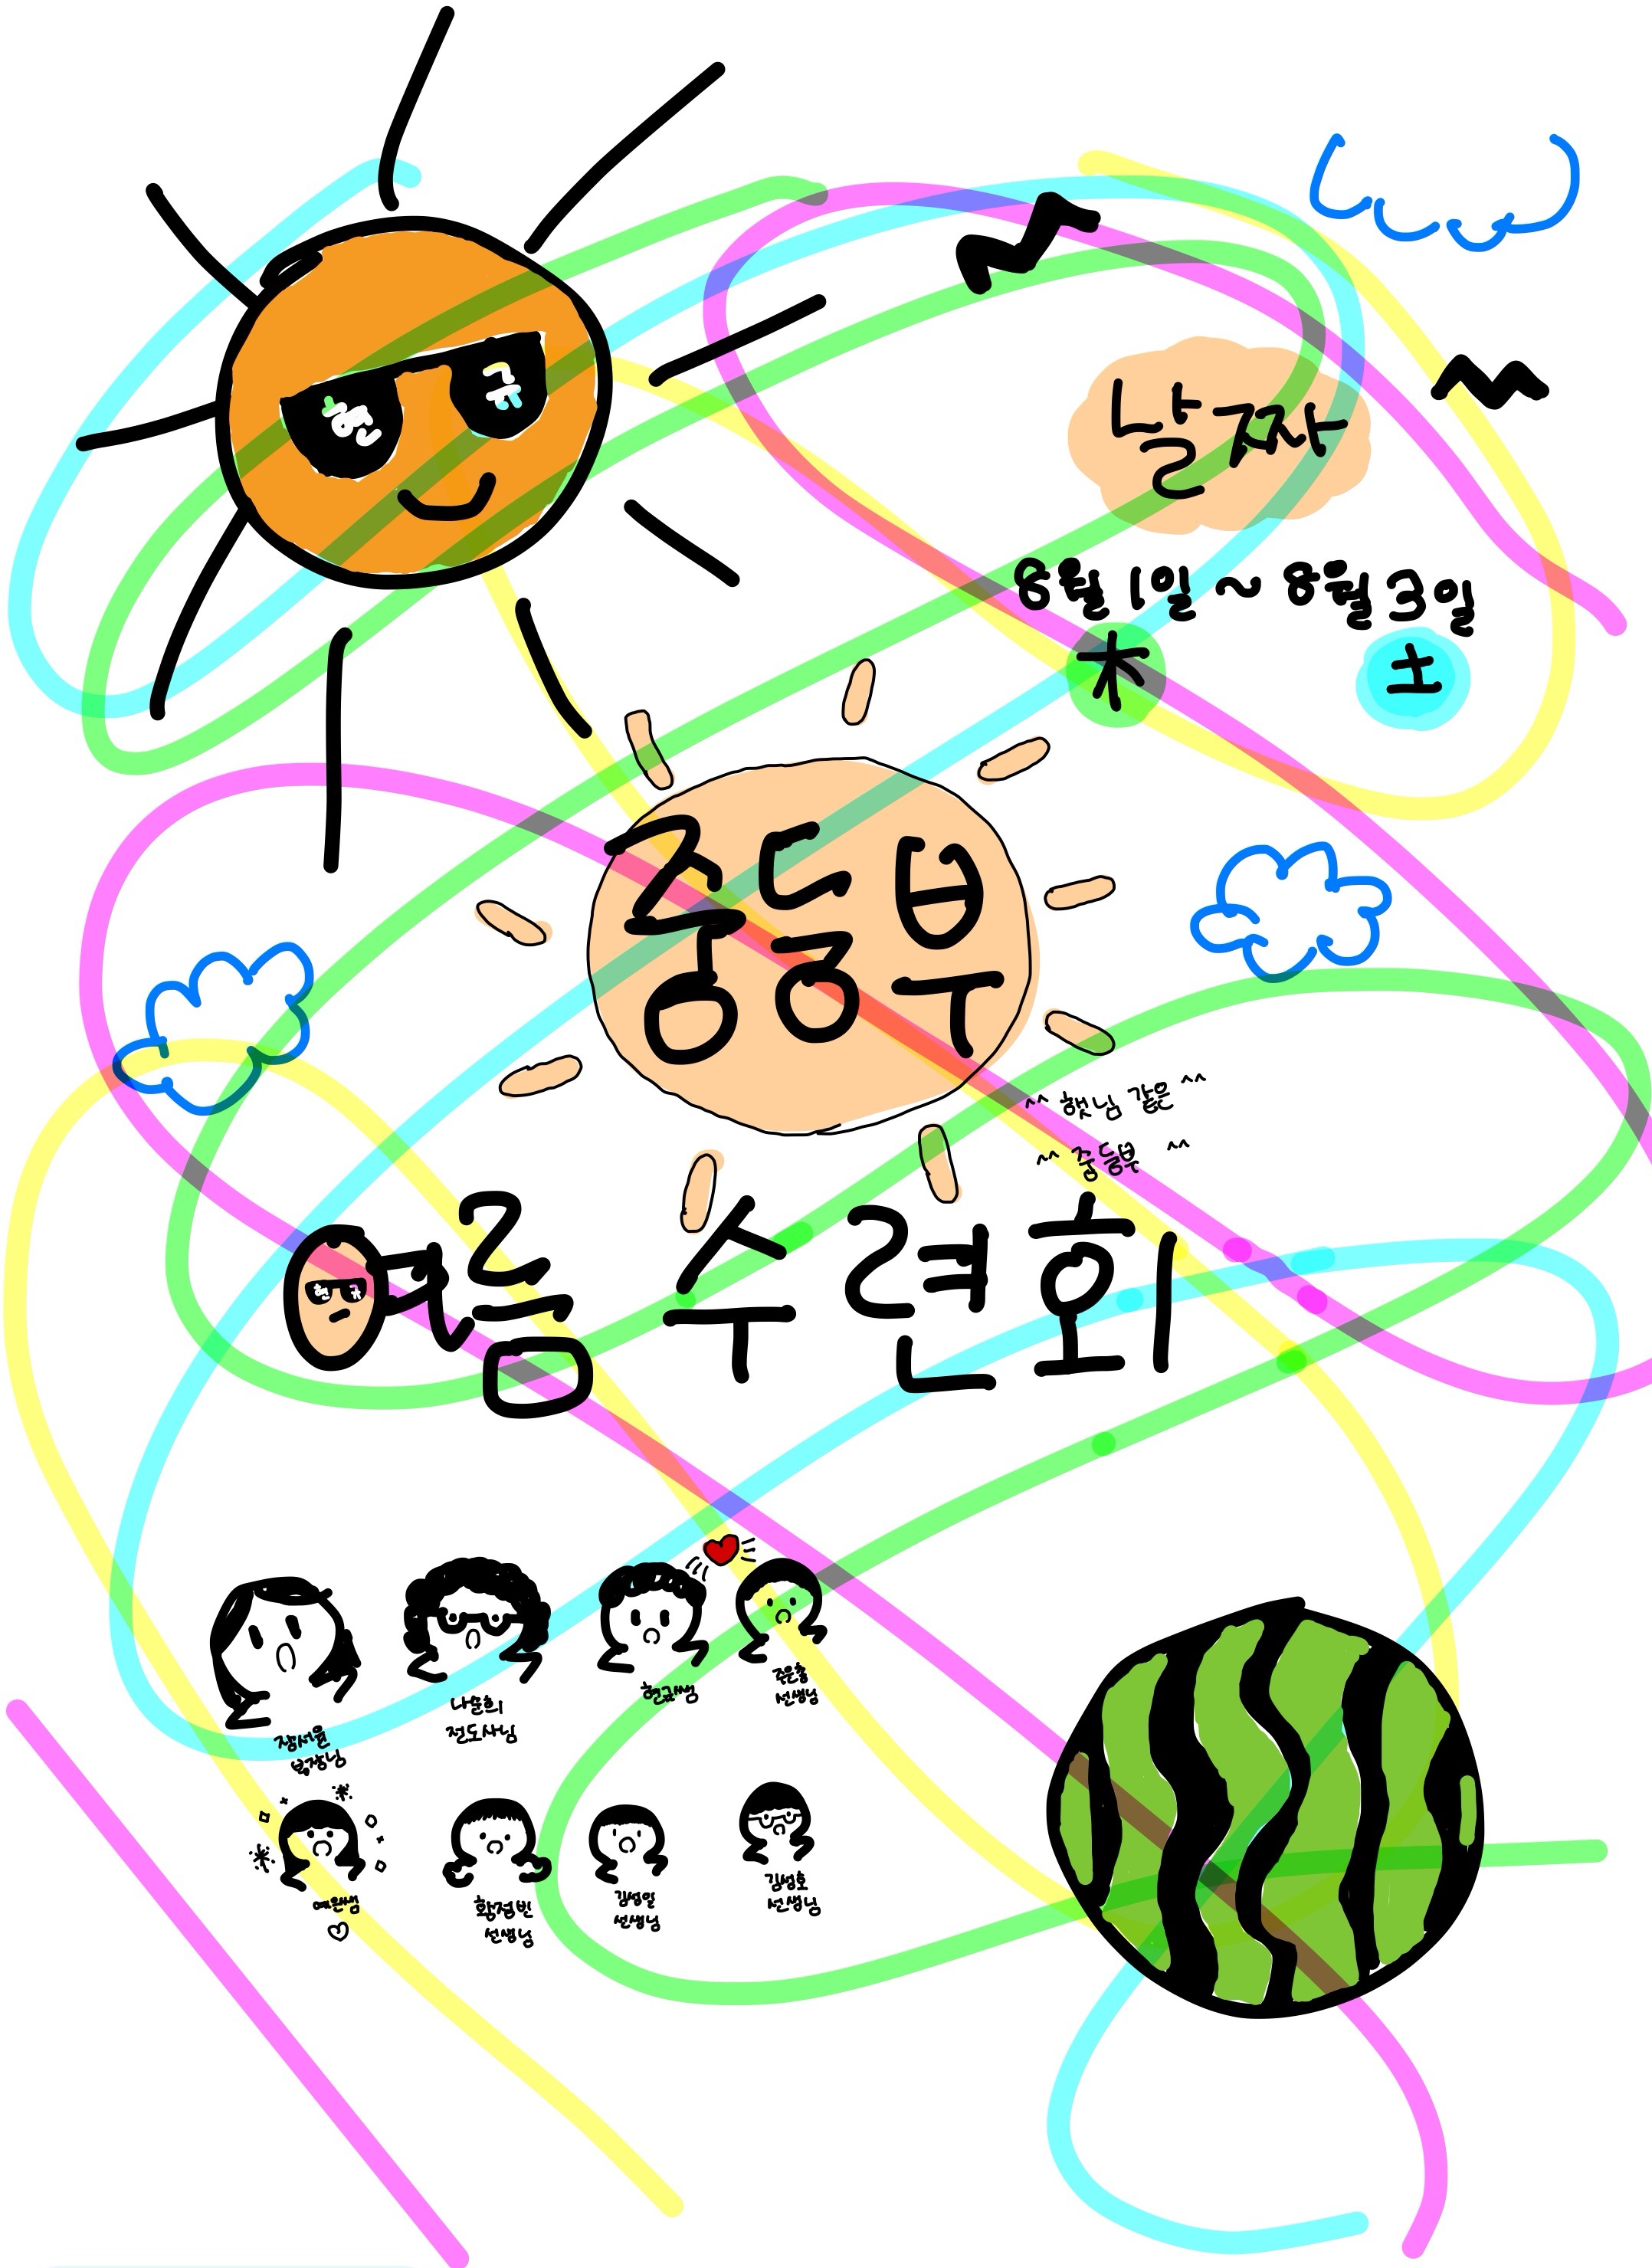 현 규
날짜
8월 1일 ~ 8월 3일
木 土
중등부
^^ 햇님 같은 ^^
^^ 중등부 ^^
여름 수련회
현 규
장서윤
부장님
나순희
전도사님
현규쌤
주은총
선생님
예원쌤
황점빈
선생님
김성일
선생님
김성호
선생님